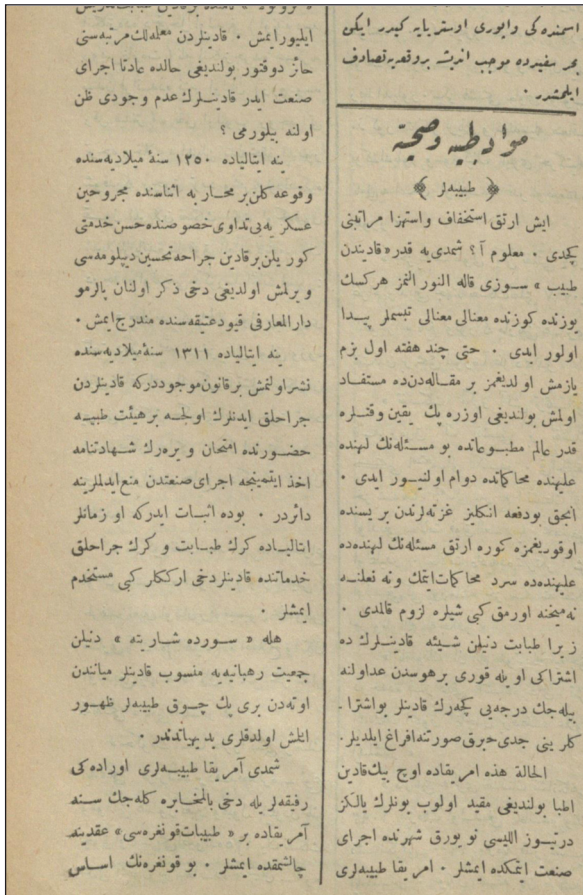 اسمنده‌كی واپوری اوستریایه كیدر ایكن
بحر سفیدده موجب اندیشه بر وقعه‌یه تصادف
ایلمشدر .
مواد طبیه و صحیه
﴿ طبیبه‌لر ﴾
ایش ارتق استخفاف واستهزا مراتبنی
كچدی . معلوم آ؟ شمدی‌یه قدر « قادیندن
طبیب » سوزی قاله النور النمز هركسك
یوزنده كوزنده معنالی معنالی تبسملر پیدا
اولور ایدی . حتی چند هفته اول بزم
یازمش اولدیغمز بر مقاله‌دن‌ده مستفاد
اولمش بولندیغی اوزره پك یقین وقتلره
قدر عالم مطبوعاتده بو مسئله‌نك لهنده
علیهنده محاكماتده دوام اولنیور ایدی .
انجق بودفعه انكلیز غزته‌لرندن بریسنده
اوقودیغمزه كوره ارتق مسئله‌نك لهنده‌ده
علیهنده‌ده سرد محاكمات ایتمك ونه نعلنه
نه میخنه اورمق كبی شیلره لزوم قالمدی .
زیرا طبابت دنیلن شیئه قادینلرك ده
اشتراكی اویله قوری بر هوسدن عد اولنه
بیله‌جك درجه‌یی كچه‌رك قادینلر بو اشترا ـ
كلرینی جدی حریق صورتنه افراغ ایلدیلر.
الحالة هذه امریقاده اوچ بیك قادین
اطبا بولندیغی مقید اولوب بونلرك یالكز
درتیوز اللیسی نویورق شهرنده اجرای
صنعت ایتمكده ایمشلر . امریقا طبیبه‌لری
ایلیورایمش . قادینلردن معلملك مرتبه‌سنی
حائز دوقتور بولندیغی حالده عادتا اجرای
صنعت ایدر قادینلرك عدم وجودی ظن
اولنه بیلورمی ؟
ینه ایتالیاده ١٢٥٠ سنهٔ میلادیه‌سنده
وقوعه كلن بر محاربه اثناسنده مجروحین
عسكریه‌یی تداوی خصوصنده حسن خدمتی
كوریلن بر قادین جراحه تحسین دیپلومه‌سی
ویرلمش اولدیغی دخی ذكر اولنان پالرمو
دارالمعارفی قیود عتیقه‌سنده مندرج ایمش .
ینه ایتالیاده ١٣١١ سنهٔ میلادیه‌سنده
نشر اولنمش بر قانون موجوددركه قادینلردن
جراحلق ایدنلرك اولجه بر هیئت طبیه
حضورنده امتحان ویره‌رك شهادتنامه
اخذ ایتمینجه اجرای صنعتدن منع ایدلملرینه
دائردر . بوده اثبات ایدركه او زمانلر
ایتالیاده كرك طبابت و كرك جراحلق
خدماتنده قادینلر دخی ارككلر كبی مستخدم
ایمشلر .
هله « سورده شاریته » دنیلن
جمعیت رهبانیه‌یه منسوب قادینلر میانندن
اوته‌دن بری پك چوق طبیبه‌لر ظهور
ایتمش اولدقلری بدیهیاتدندر .
شمدی آمریقا طبیبه‌لری اوراده‌كی
رفیقه‌لریله دخی بالمخابره كله‌جك سنه
آمریقاده بر « طبیبات قونغره‌سی » عقدینه
چالشمقده ایمشلر . بو قونغره‌نك اساس